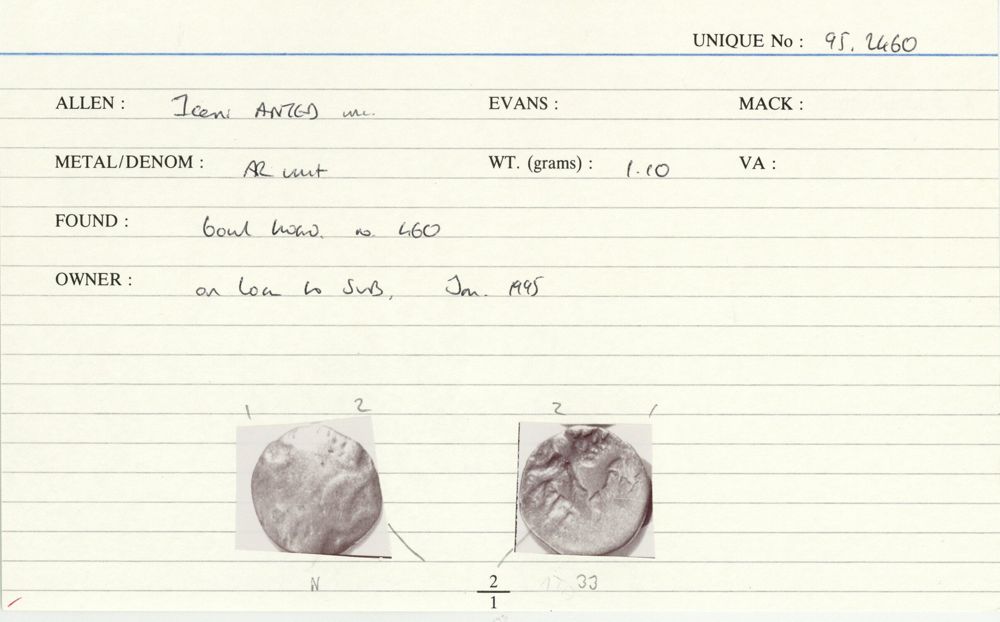 UNIQUE No : 95. 2460
ALLEN : Iceni ANTED unc. EVANS : MACK :
METAL/DENOM : AR unit WT. (grams) : 1.10 VA :
FOUND : bowl hoard. no. 460
OWNER : on loan to SWB, Jan. 1995
1 2 2 1
N 2 33
1